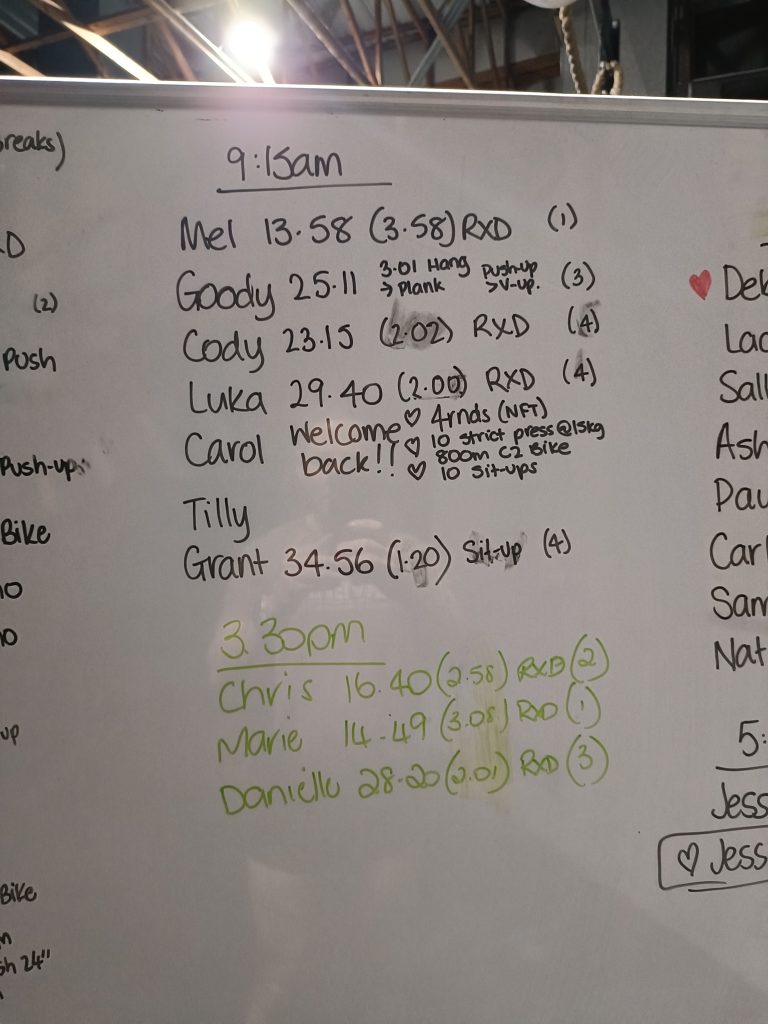 reaks)
D
(2)
Push
Push-up
Bike
up
Bike
24"
9:15am
Mel 13.58 (3.58) RXD (1)
Goody 25.11 3.01 Hang → Plank Push-up >V-up. (3)
Cody 23.15 (2.02) RXD (4)
Luka 29.40 (2.00) RXD (4)
Carol Welcome back!! ♡ 4rnds (NFT)
♡ 10 strict press @15kg
800m C2 Bike
♡ 10 Sit-ups
Tilly
Grant 34.56 (1.20) Sit-up (4)
3.30pm
Chris 16.40 (2.58) RXD (2)
Marie 14.49 (3.08) RXD (1)
Danielle 28.20 (2.01) RXD (3)
♥ Deb
Lac
Sall
Ash
Pau
Carl
Sam
Nat
5:
Jess
♡ Jess